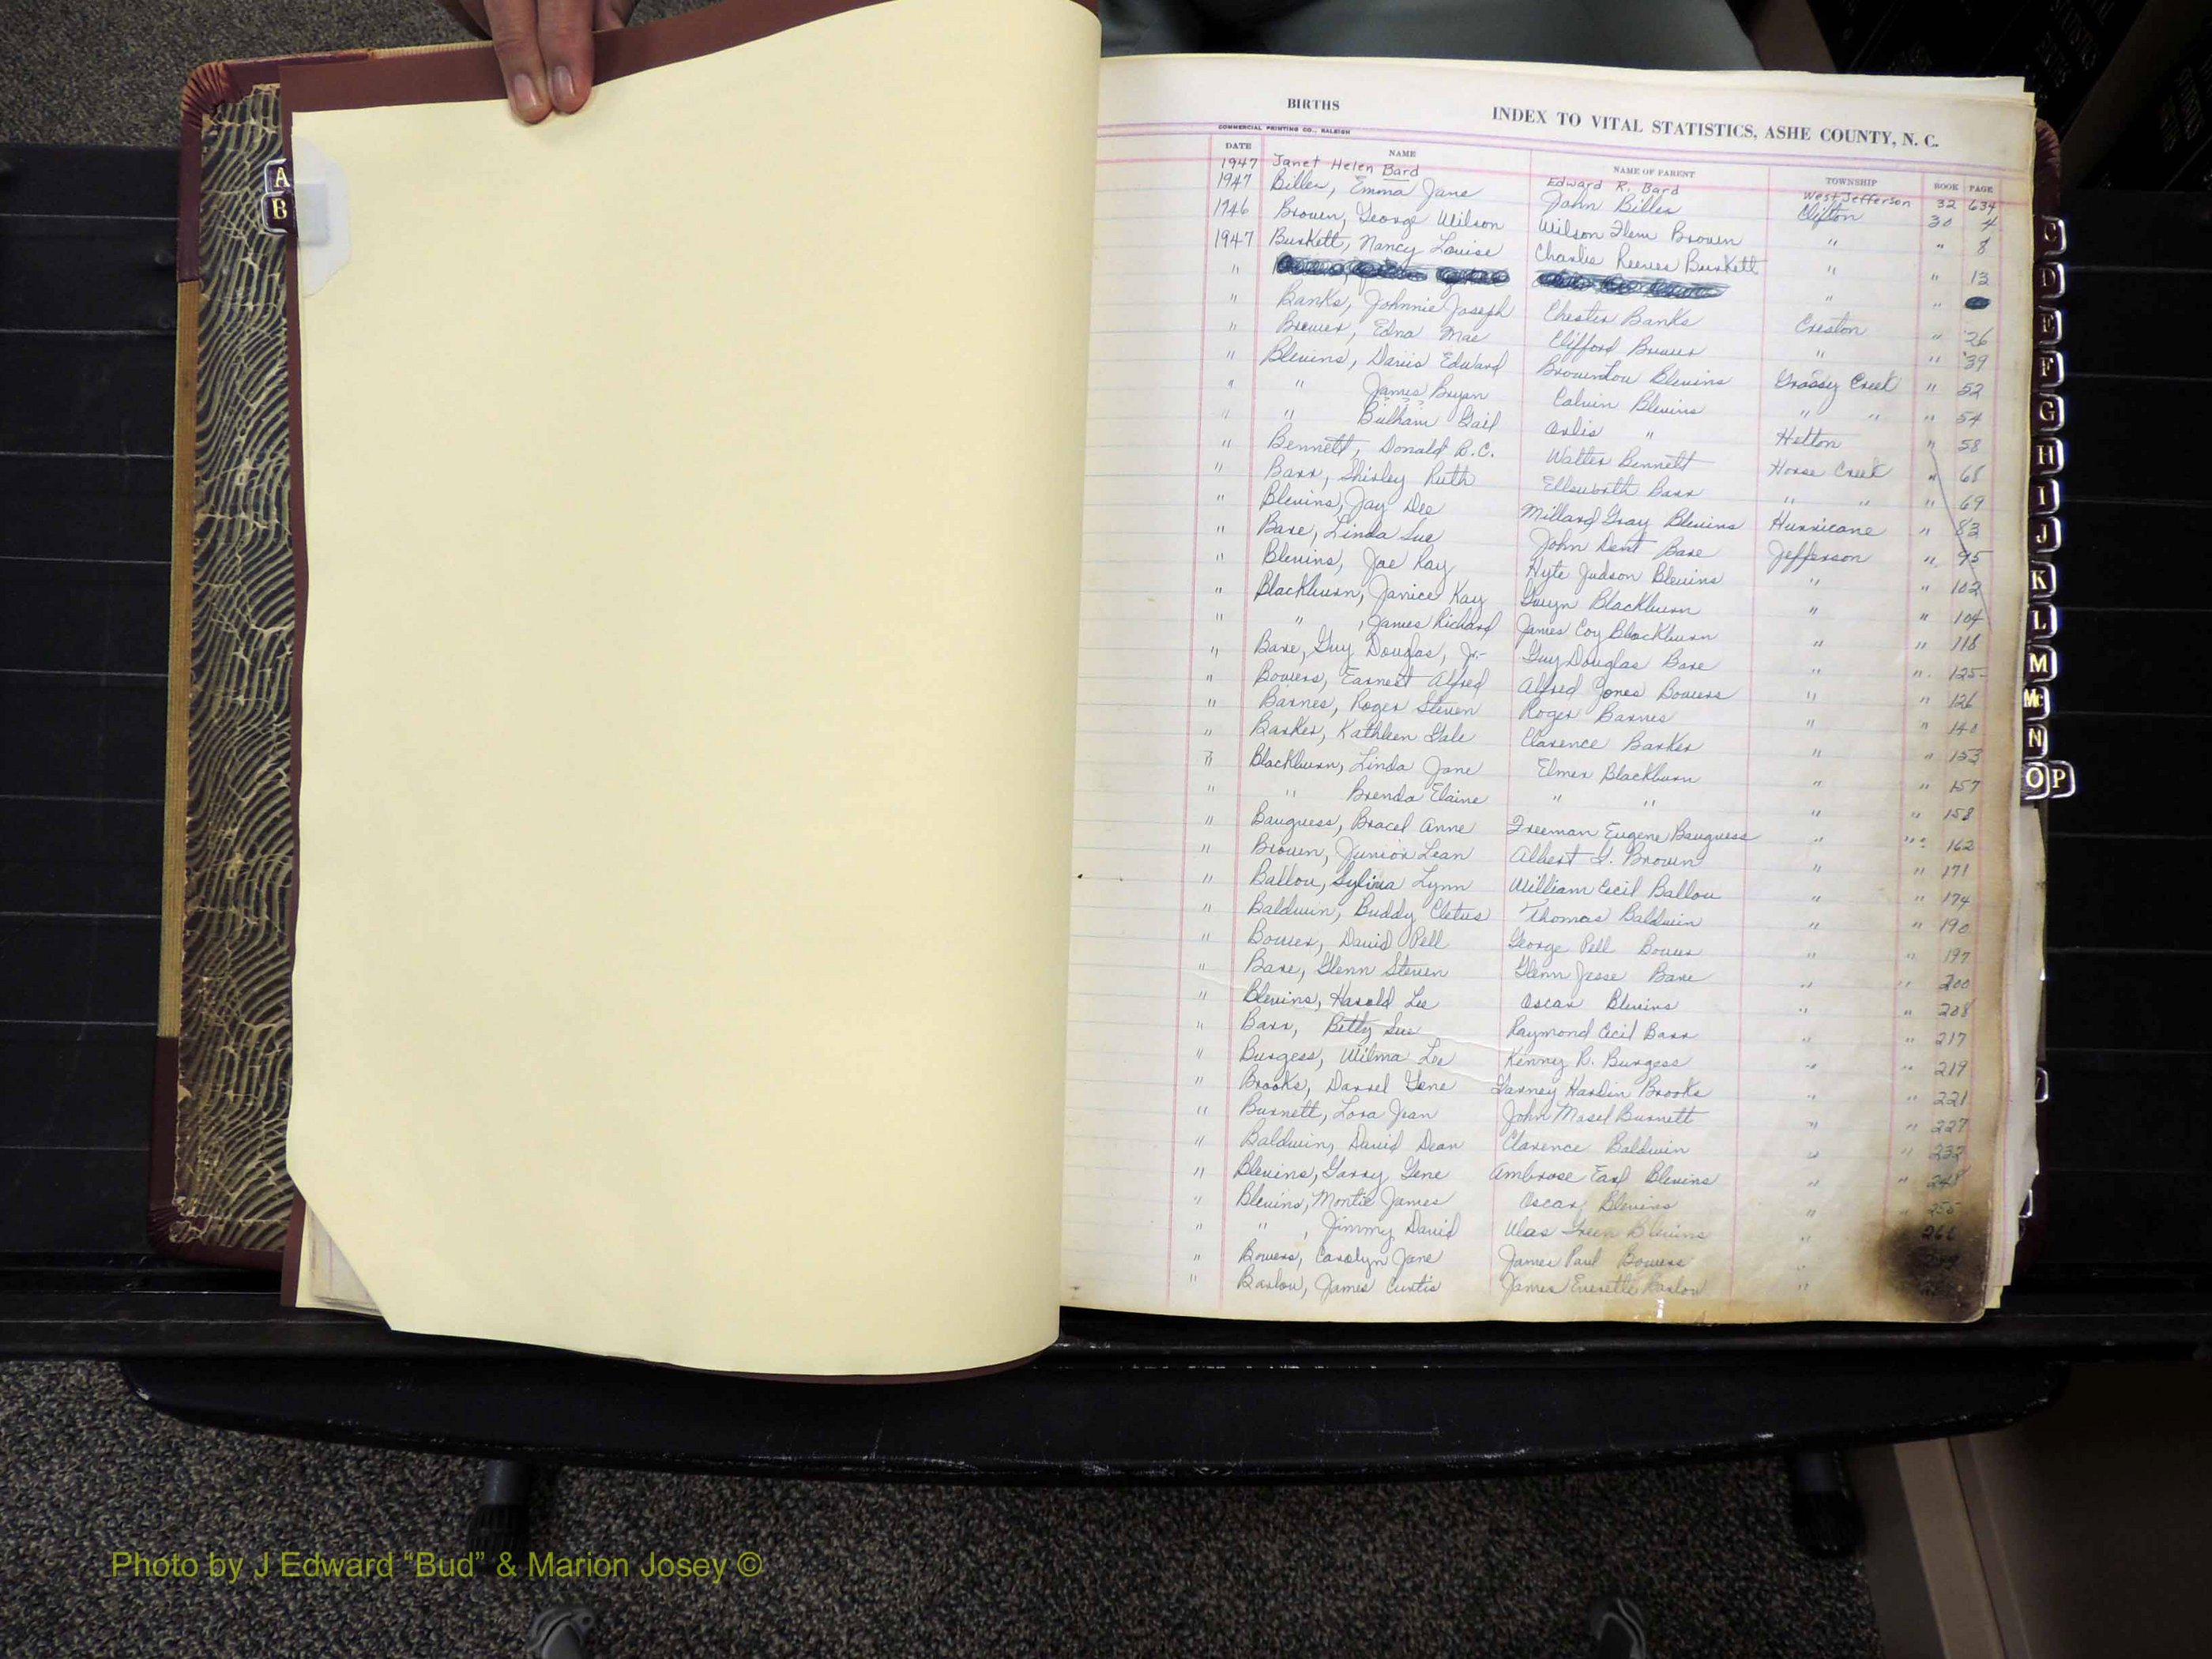 BIRTHS
INDEX TO VITAL STATISTICS, ASHE COUNTY, N. C.
COMMERCIAL PRINTING CO., RALEIGH
DATE NAME NAME OF PARENT TOWNSHIP BOOK PAGE
1947 Janet Helen Bard Edward R. Bard West Jefferson 32 634
1947 Biller, Emma Jane John Biller Clifton 30 4
1946 Brown, George Wilson Wilson Flem Brown " " 8
1947 Burkett, Nancy Louise Charlie Reeves Burkett " " 13
" " "
" Banks, Johnnie Joseph Chester Banks Creston " 26
" Brewer, Edna Mae Clifford Brewer " " 39
" Blevins, Davis Edward Brownlow Blevins Grassy Creek " 52
" " James Bryan Calvin Blevins " " " 54
" " Gail Orlis " Helton " 58
" Bennett, Donald R.C. Walter Bennett Horse Creek " 68
" Barr, Shirley Ruth Ellsworth Barr " " " 69
" Blevins, Jay Dee Millard Gray Blevins Hurricane " 83
" Bare, Linda Sue John Dent Bare Jefferson " 95
" Blevins, Joe Ray Hyte Judson Blevins " " 102
" Blackburn, Janice Kay Gwyn Blackburn " " 104
" " , James Richard James Coy Blackburn " " 118
" Bare, Guy Douglas, Jr- Guy Douglas Bare " " 125
" Bowers, Earnest Alfred Alfred Jones Bowers " " 126
" Barnes, Roger Steven Roger Barnes " " 140
" Barker, Kathleen Gale Clarence Barker " " 153
" Blackburn, Linda Jane Elmer Blackburn " " 157
" " Brenda Elaine " " " " 158
" Bauguess, Bracel Anne Freeman Eugene Bauguess " " 162
" Brown, Junior Lean Albert G. Brown " " 171
" Ballou, Sylivia Lynn William Cecil Ballou " " 174
" Baldwin, Buddy Cletus Thomas Baldwin " " 190
" Bower, David Pell George Pell Bower " " 197
" Bare, Glenn Steven Glenn Jesse Bare " " 200
" Blevins, Harold Lee Oscar Blevins " " 208
" Barr, Betty Sue Raymond Cecil Barr " " 217
" Burgess, Wilma Lee Kenny B. Burgess " " 219
" Brooks, Darrel Gene Garney Hardin Brooks " " 221
" Burnett, Lora Jean John Masel Burnett " " 227
" Baldwin, David Dean Clarence Baldwin " " 232
" Blevins, Garry Gene Ambrose Earl Blevins " " 248
" Blevins, Montie James Oscar Blevins " " 255
" " , Jimmy David Green Blevins " 266
" Bowers, Carolyn Jane James Paul Bowers "
" Barlow, James Curtis James Everette Barlow "
A
B
C
D
E
F
G
H
I
J
K
L
M
Mc
N
O P
Photo by J Edward “Bud” & Marion Josey ©